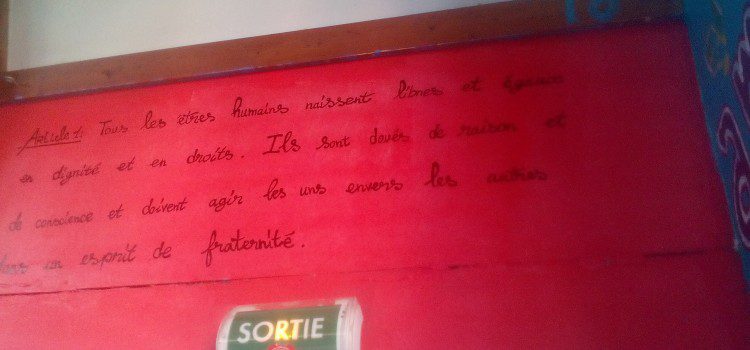 Article 1: Tous les êtres humains naissent libres et égaux
en dignité et en droits. Ils sont doués de raison et
de conscience et doivent agir les uns envers les autres
dans un esprit de fraternité.
SORTIE